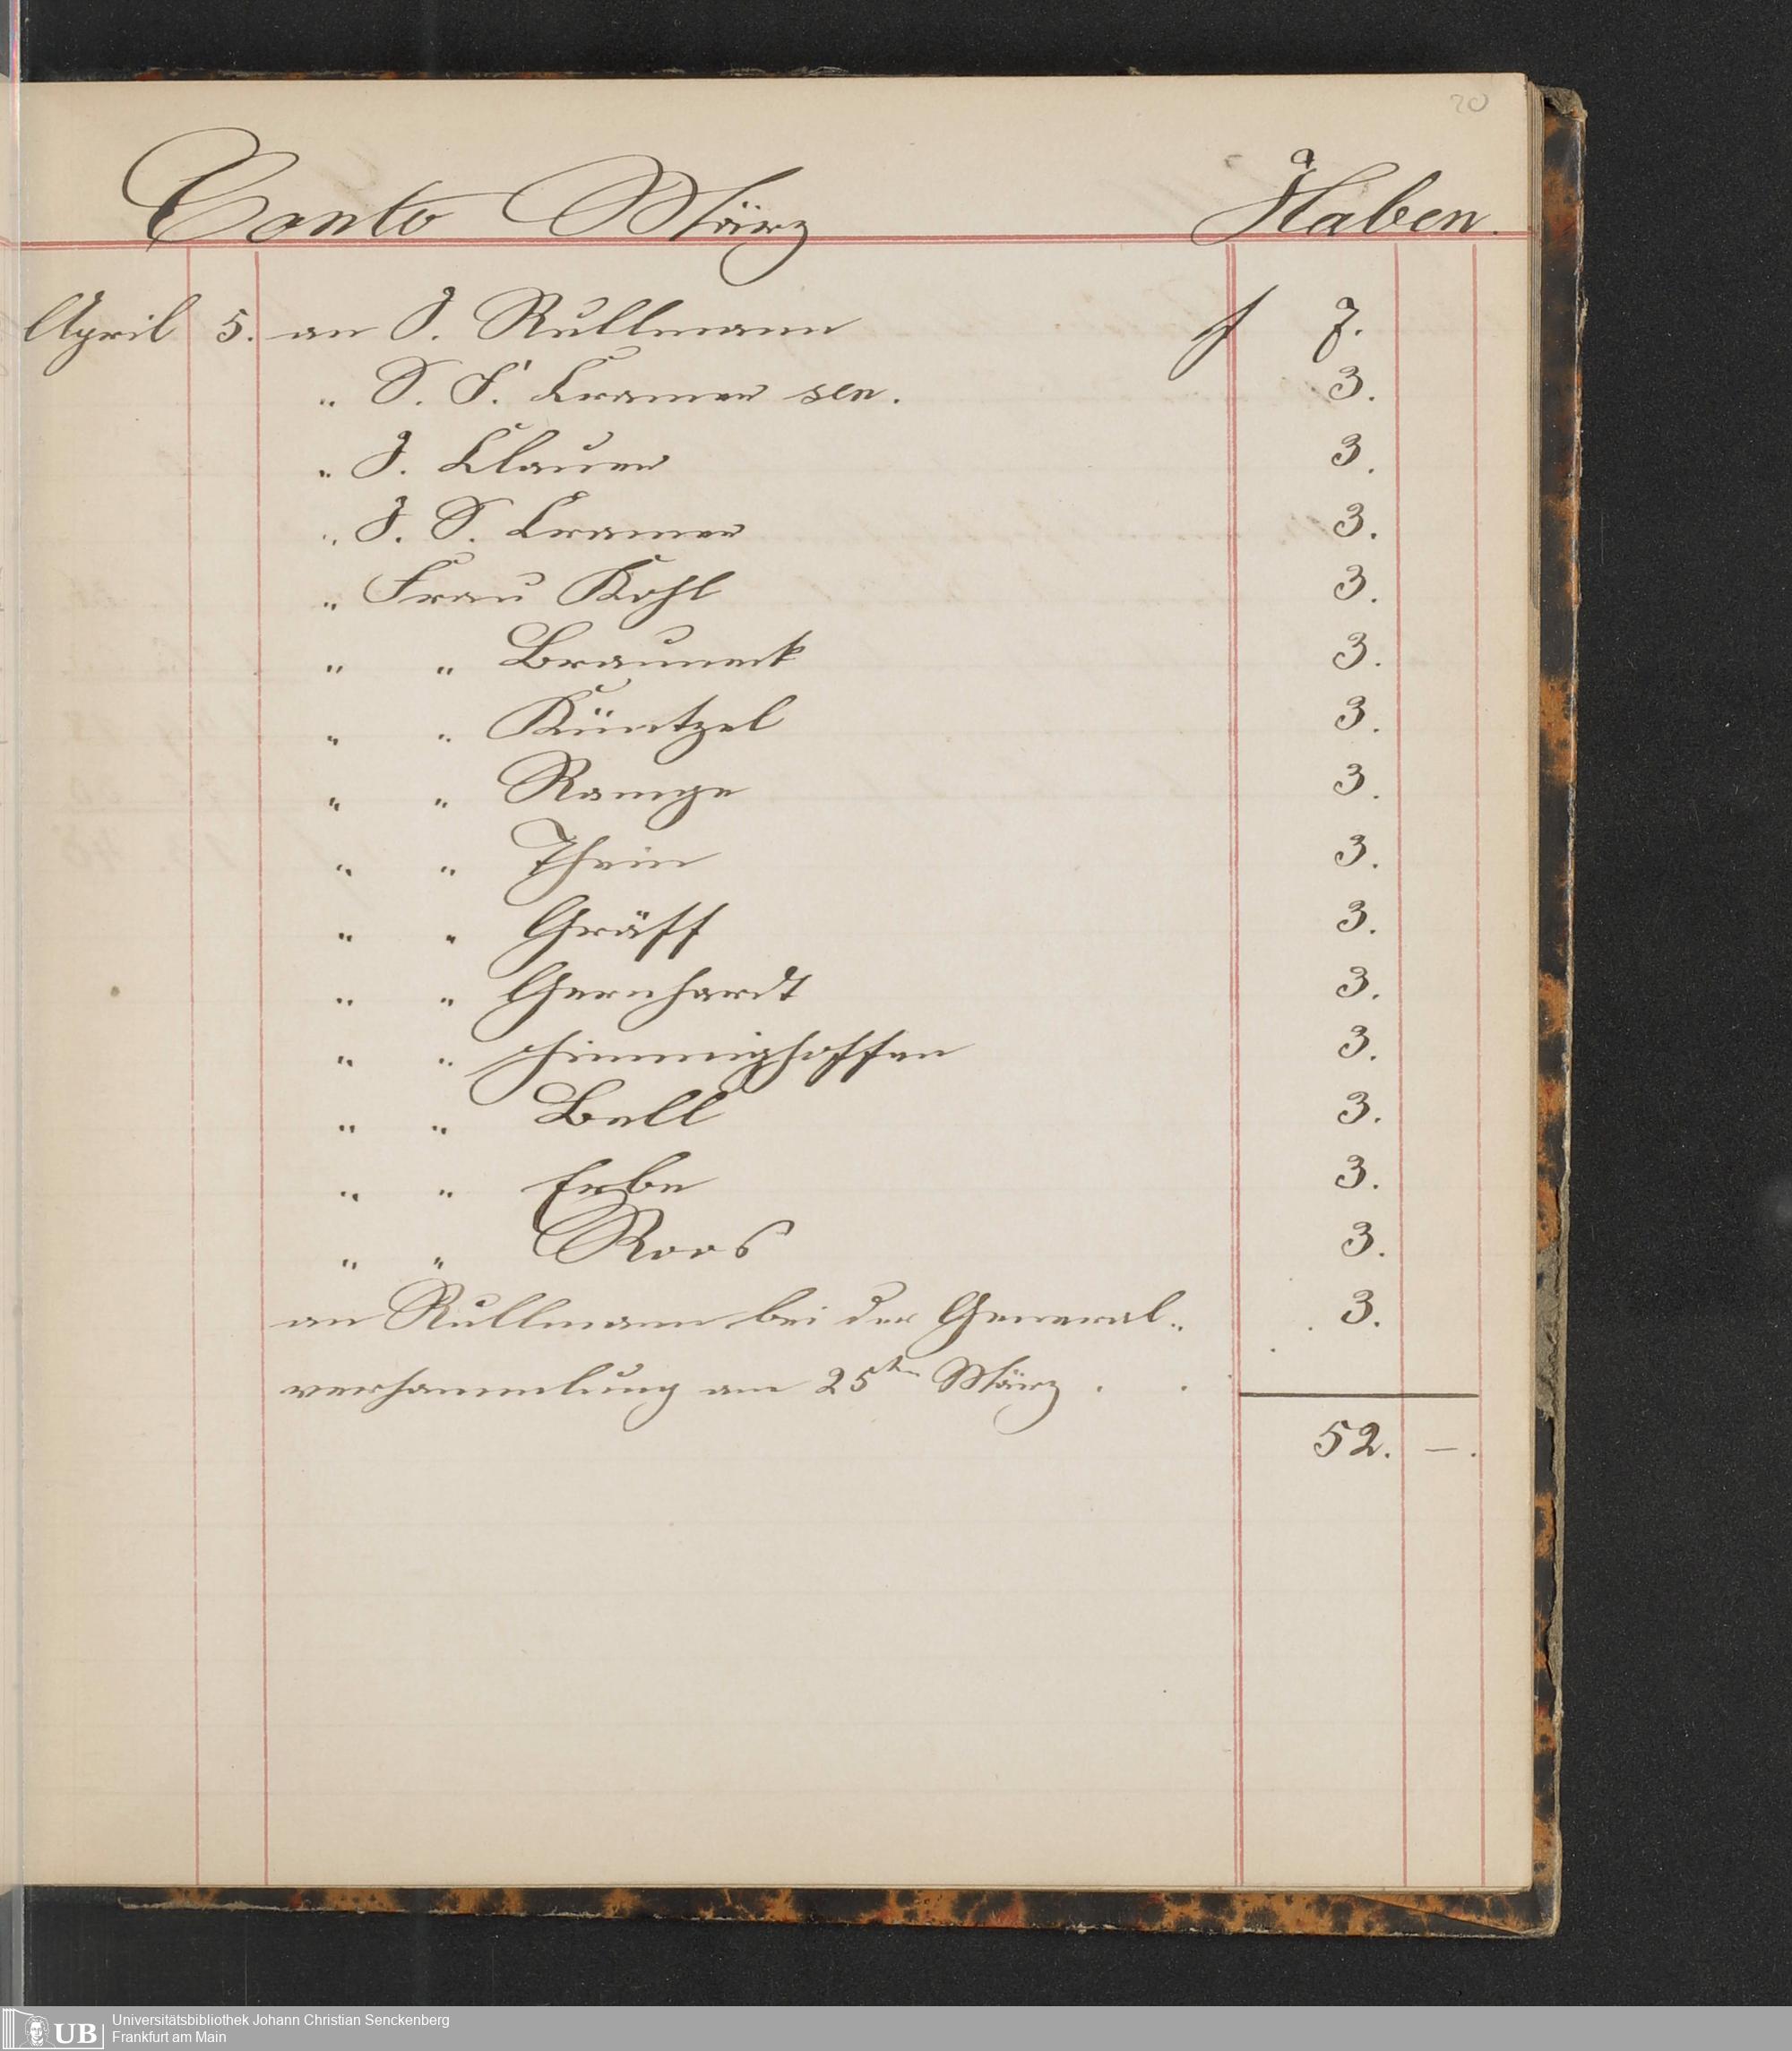 20
Conto März Haben.
April 5. an J. Rullmann f 7.
„ S. F. Cramer sen. 3.
„ J. Clauer 3.
„ J. S. Cramer 3.
„ Frau Kohl 3.
„ „ Brauneck 3.
„ „ Küntzel 3.
„ „ Ramge 3.
„ „ Thein 3.
„ „ Gräff 3.
„ „ Gernhardt 3.
„ „ Himmighoffen 3.
„ „ Bell 3.
„ „ Erbe 3.
„ „ Roos 3.
an Rullmann bei der General„ 3.
versammlung am 25ten März . .
52. —.
UB Universitätsbibliothek Johann Christian Senckenberg
Frankfurt am Main